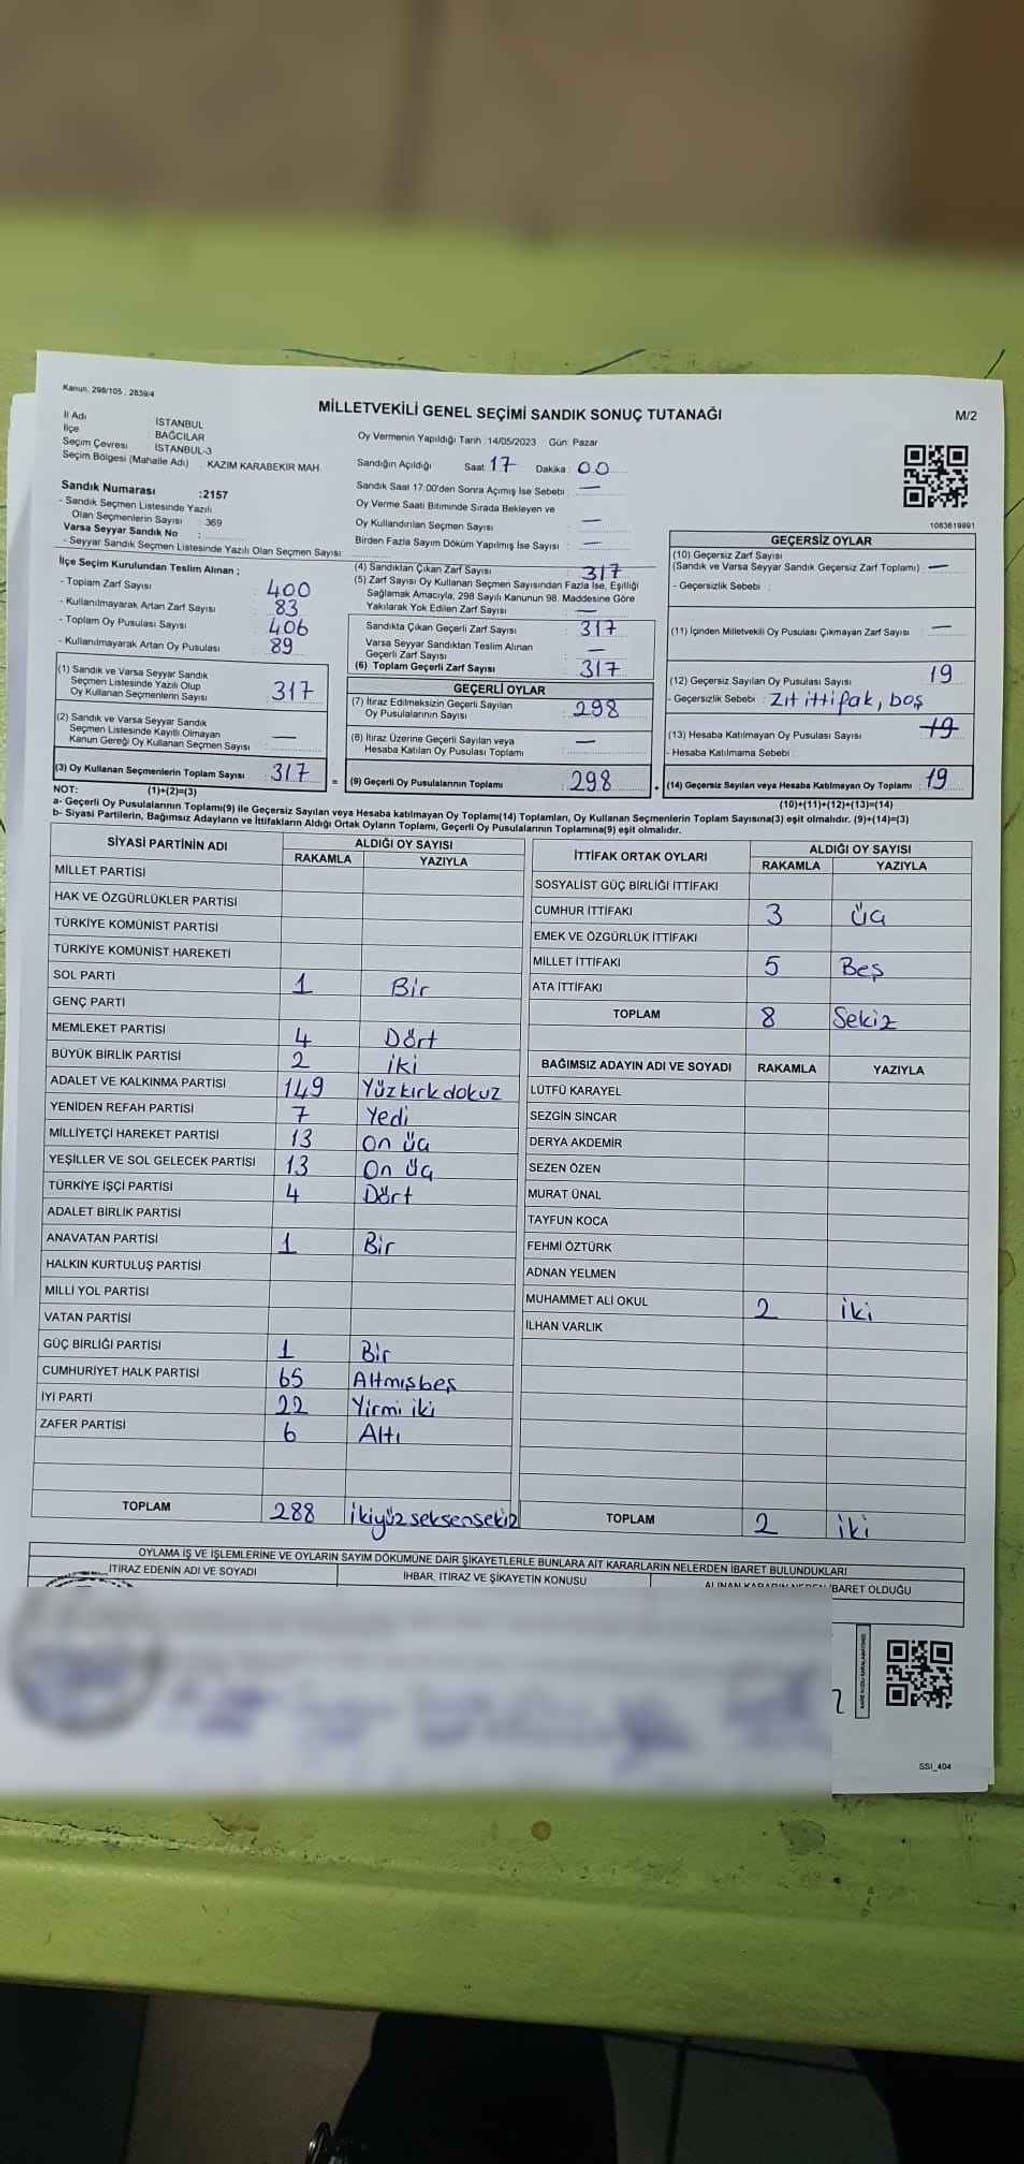 Kanun: 298/105 ; 2839/4
MİLLETVEKİLİ GENEL SEÇİMİ SANDIK SONUÇ TUTANAĞI
M/2
İl Adı : İSTANBUL
İlçe : BAĞCILAR
Seçim Çevresi : İSTANBUL-3
Seçim Bölgesi (Mahalle Adı) : KAZIM KARABEKİR MAH.
Sandık Numarası :2157
- Sandık Seçmen Listesinde Yazılı
Olan Seçmenlerin Sayısı : 369
Varsa Seyyar Sandık No :
- Seyyar Sandık Seçmen Listesinde Yazılı Olan Seçmen Sayısı:
Oy Vermenin Yapıldığı Tarih :14/05/2023 Gün: Pazar
Sandığın Açıldığı Saat: 17 Dakika: 00
Sandık Saat 17:00'den Sonra Açımış İse Sebebi : —
Oy Verme Saati Bitiminde Sırada Bekleyen ve
Oy Kullandırılan Seçmen Sayısı : —
Birden Fazla Sayım Döküm Yapılmış İse Sayısı : —
1083619991
İlçe Seçim Kurulundan Teslim Alınan ;
- Toplam Zarf Sayısı : 400
- Kullanılmayarak Artan Zarf Sayısı : 83
- Toplam Oy Pusulası Sayısı : 406
- Kullanılmayarak Artan Oy Pusulası : 89
(1) Sandık ve Varsa Seyyar Sandık
Seçmen Listesinde Yazılı Olup
Oy Kullanan Seçmenlerin Sayısı : 317
(2) Sandık ve Varsa Seyyar Sandık
Seçmen Listesinde Kayıtlı Olmayan
Kanun Gereği Oy Kullanan Seçmen Sayısı : —
(3) Oy Kullanan Seçmenlerin Toplam Sayısı : 317
(4) Sandıktan Çıkan Zarf Sayısı : 317
(5) Zarf Sayısı Oy Kullanan Seçmen Sayısından Fazla İse, Eşitliği
Sağlamak Amacıyla, 298 Sayılı Kanunun 98. Maddesine Göre
Yakılarak Yok Edilen Zarf Sayısı : —
Sandıkta Çıkan Geçerli Zarf Sayısı : 317
Varsa Seyyar Sandıktan Teslim Alınan
Geçerli Zarf Sayısı : —
(6) Toplam Geçerli Zarf Sayısı : 317
GEÇERLİ OYLAR
(7) İtiraz Edilmeksizin Geçerli Sayılan
Oy Pusulalarının Sayısı : 298
(8) İtiraz Üzerine Geçerli Sayılan veya
Hesaba Katılan Oy Pusulası Toplamı : —
= (9) Geçerli Oy Pusulalarının Toplamı : 298
GEÇERSİZ OYLAR
(10) Geçersiz Zarf Sayısı
(Sandık ve Varsa Seyyar Sandık Geçersiz Zarf Toplamı) : —
- Geçersizlik Sebebi :
(11) İçinden Milletvekili Oy Pusulası Çıkmayan Zarf Sayısı : —
(12) Geçersiz Sayılan Oy Pusulası Sayısı : 19
- Geçersizlik Sebebi : Zıt ittifak, boş
(13) Hesaba Katılmayan Oy Pusulası Sayısı : 19
- Hesaba Katılmama Sebebi :
(14) Geçersiz Sayılan veya Hesaba Katılmayan Oy Toplamı : 19
NOT: (1)+(2)=(3)
(10)+(11)+(12)+(13)=(14)
a- Geçerli Oy Pusulalarının Toplamı(9) ile Geçersiz Sayılan veya Hesaba katılmayan Oy Toplamı(14) Toplamları, Oy Kullanan Seçmenlerin Toplam Sayısına(3) eşit olmalıdır. (9)+(14)=(3)
b- Siyasi Partilerin, Bağımsız Adayların ve İttifakların Aldığı Ortak Oyların Toplamı, Geçerli Oy Pusulalarının Toplamına(9) eşit olmalıdır.
SİYASİ PARTİNİN ADI ALDIĞI OY SAYISI
RAKAMLA YAZIYLA
MİLLET PARTİSİ
HAK VE ÖZGÜRLÜKLER PARTİSİ
TÜRKİYE KOMÜNİST PARTİSİ
TÜRKİYE KOMÜNİST HAREKETİ
SOL PARTİ 1 Bir
GENÇ PARTİ
MEMLEKET PARTİSİ 4 Dört
BÜYÜK BİRLİK PARTİSİ 2 iki
ADALET VE KALKINMA PARTİSİ 149 Yüz kırk dokuz
YENİDEN REFAH PARTİSİ 7 Yedi
MİLLİYETÇİ HAREKET PARTİSİ 13 On üç
YEŞİLLER VE SOL GELECEK PARTİSİ 13 On üç
TÜRKİYE İŞÇİ PARTİSİ 4 Dört
ADALET BİRLİK PARTİSİ
ANAVATAN PARTİSİ 1 Bir
HALKIN KURTULUŞ PARTİSİ
MİLLİ YOL PARTİSİ
VATAN PARTİSİ
GÜÇ BİRLİĞİ PARTİSİ 1 Bir
CUMHURİYET HALK PARTİSİ 65 Altmışbeş
İYİ PARTİ 22 Yirmi iki
ZAFER PARTİSİ 6 Altı
TOPLAM 288 İkiyüz seksensekiz
İTTİFAK ORTAK OYLARI ALDIĞI OY SAYISI
RAKAMLA YAZIYLA
SOSYALİST GÜÇ BİRLİĞİ İTTİFAKI
CUMHUR İTTİFAKI 3 üç
EMEK VE ÖZGÜRLÜK İTTİFAKI
MİLLET İTTİFAKI 5 Beş
ATA İTTİFAKI
TOPLAM 8 Sekiz
BAĞIMSIZ ADAYIN ADI VE SOYADI RAKAMLA YAZIYLA
LÜTFÜ KARAYEL
SEZGİN SİNCAR
DERYA AKDEMİR
SEZEN ÖZEN
MURAT ÜNAL
TAYFUN KOCA
FEHMİ ÖZTÜRK
ADNAN YELMEN
MUHAMMET ALİ OKUL 2 iki
İLHAN VARLIK
TOPLAM 2 iki
OYLAMA İŞ VE İŞLEMLERİNE VE OYLARIN SAYIM DÖKÜMÜNE DAİR ŞİKAYETLERLE BUNLARA AİT KARARLARIN NELERDEN İBARET BULUNDUKLARI
İTİRAZ EDENİN ADI VE SOYADI
İHBAR, İTİRAZ VE ŞİKAYETİN KONUSU
ALINAN KARARIN NEDEN İBARET OLDUĞU
SSI_404